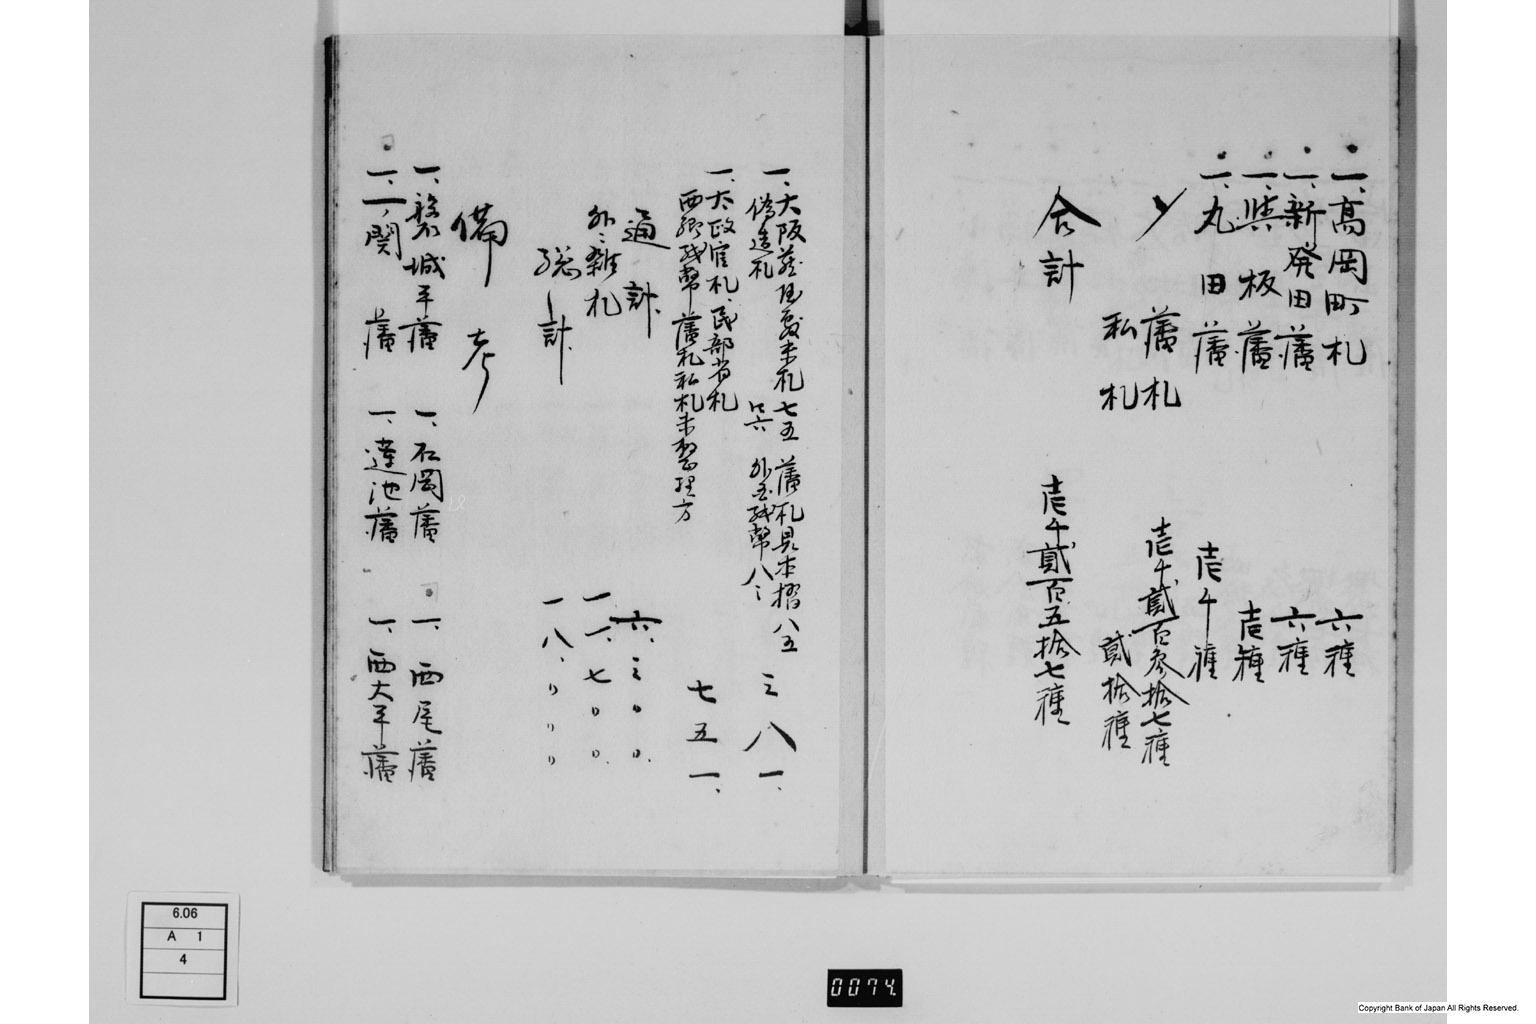 一、高岡町札 六種
一、新発田藩 六種
一、與板藩 壱種
一、丸田藩 壱千種
〆 藩札 壱千貳百参拾七種
私札 貳拾種
合計 壱千貳百五拾七種
一、大阪蔵屋敷米札 七五 藩札見本摺 八五
偽造札 只六 外国紙幣 八〻 三八一、
一、太政官札、民部省札
西郷紙幣 藩札私札未整理方 七五一、
通計 六、三〃〃、
外ニ雑札 一一、七〃〃、
総計 一八、〃〃〃
備考
一、磐城平藩 一、石岡藩 一、西尾藩
一、一ノ関藩 一、蓮池藩 一、西大平藩
6.06
A 1
4
0074
Copyright Bank of Japan All Rights Reserved.